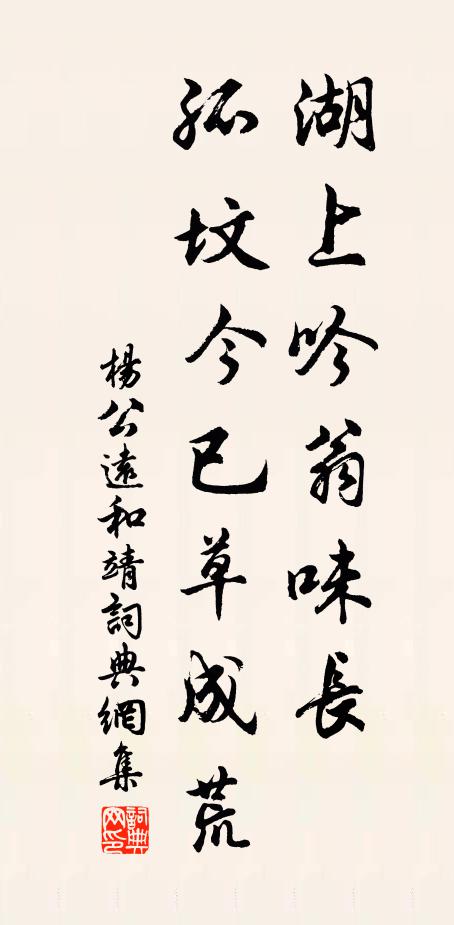 湖上吟翁味長
孤坟今已草成荒
楊公遠和靖詞典網集
詞典网印